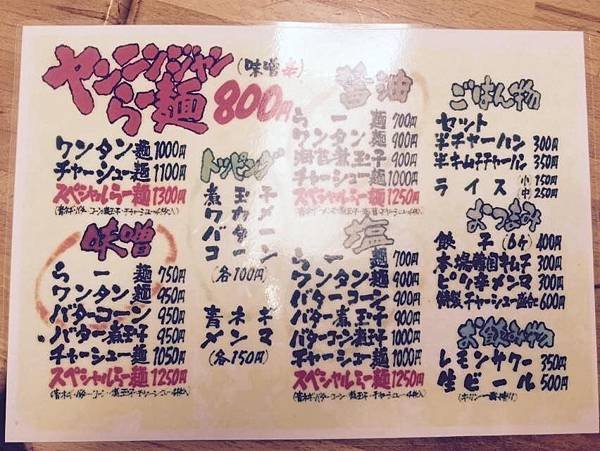 ヤンニンジャン(味噌辛)
らー麺 800円
ワンタン麺 1000円
チャーシュー麺 1100円
スペシャルらー麺 1300円
味噌
らー麺 750円
ワンタン麺 950円
バターコーン 950円
バター煮玉子 950円
チャーシュー麺 1050円
スペシャルらー麺 1250円
トッピング
煮玉子
ワカメ
バター
コーン
(各100円)
青ネギ
メンマ
(各150円)
醤油
らー麺 700円
ワンタン麺 900円
海苔煮玉子 900円
チャーシュー麺 1000円
スペシャルらー麺 1250円
塩
らー麺 700円
ワンタン麺 900円
バターコーン 900円
バター煮玉子 900円
バターコーン煮玉子 1000円
チャーシュー麺 1000円
スペシャルらー麺 1250円
ごはん物
セット
半チャーハン 300円
半キムチチャーハン 350円
ライス 小 150円
中 250円
おつまみ
餃子(6ケ) 400円
本場韓国キムチ 300円
ピリ辛メンマ 300円
特製チャーシュー盛合せ 600円
お飲み物
レモンサワー 350円
生ビール 500円
(キリン一番搾り)